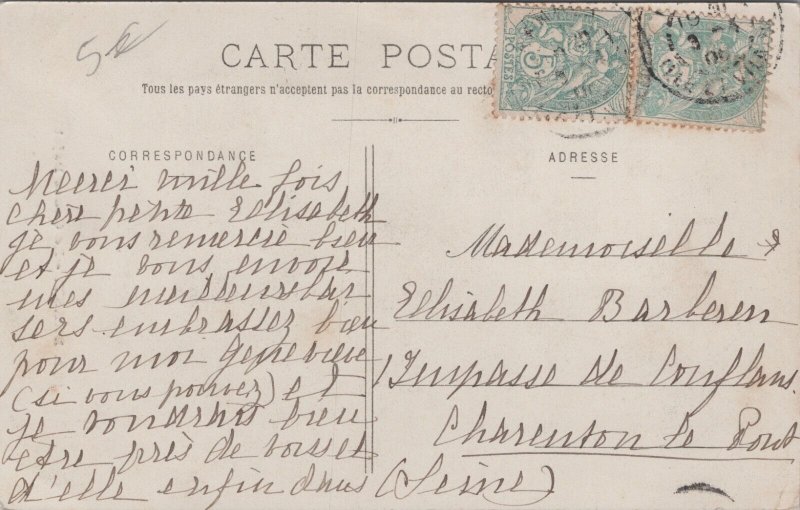 5c
CARTE POSTA
Tous les pays étrangers n'acceptent pas la correspondance au recto
CORRESPONDANCE
Meerci mille fois
chere petite Ellisabeth
je vous remercie bien
et je vous envoir
mes meilleurs bai
sers embrassez bien
pour moi Genevieve
(si vous pouvez) et
je voudrais bien
etre près de vous et
d'elle enfin dans
ADRESSE
Mademoiselle
Ellisabeth Barberen
1 Impasse de Conflans
Charenton le Pont
(Seine)
POSTES
5